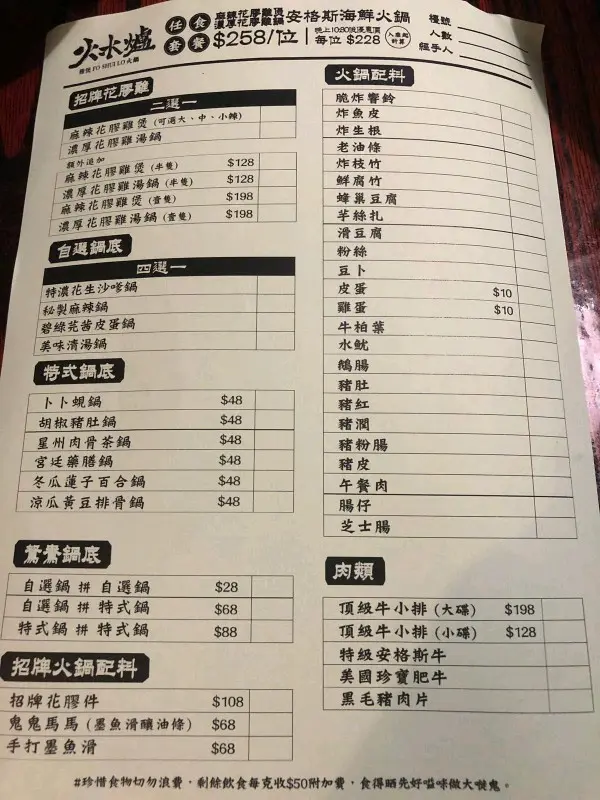 火水爐
FO SHUI LO 火鍋
任食套餐
麻辣花膠雞煲
濃厚花膠雞鍋
安格斯海鮮火鍋
$258/位
每位 $228
檯號
人數
經手人
招牌花膠雞
二選一
麻辣花膠雞煲 (可選大、中、小辣)
濃厚花膠雞湯鍋
額外追加
麻辣花膠雞煲 (半隻) $128
濃厚花膠雞湯鍋 (半隻) $128
麻辣花膠雞煲 (壹隻) $198
濃厚花膠雞湯鍋 (壹隻) $198
自選鍋底
四選一
特濃花生沙嗲鍋
秘製麻辣鍋
碧綠芫茜皮蛋鍋
美味清湯鍋
特式鍋底
卜卜蜆鍋 $48
胡椒豬肚鍋 $48
星州肉骨茶鍋 $48
宮廷藥膳鍋 $48
冬瓜蓮子百合鍋 $48
涼瓜黃豆排骨鍋 $48
鴛鴦鍋底
自選鍋 拼 自選鍋 $28
自選鍋 拼 特式鍋 $68
特式鍋 拼 特式鍋 $88
招牌火鍋配料
招牌花膠件 $108
鬼鬼馬馬 (墨魚滑釀油條) $68
手打墨魚滑 $68
火鍋配料
脆炸響鈴
炸魚皮
炸生根
老油條
炸枝竹
鮮腐竹
蜂巢豆腐
芊絲扎
滑豆腐
粉絲
豆卜
皮蛋 $10
雞蛋 $10
牛柏葉
水魷
鵝腸
豬肚
豬紅
豬潤
豬粉腸
豬皮
午餐肉
腸仔
芝士腸
肉類
頂級牛小排 (大碟) $198
頂級牛小排 (小碟) $128
特級安格斯牛
美國珍寶肥牛
黑毛豬肉片
#珍惜食物切勿浪費，剩餘飲食每克收$50附加費，食得晒先好嗌味做大嘥鬼。